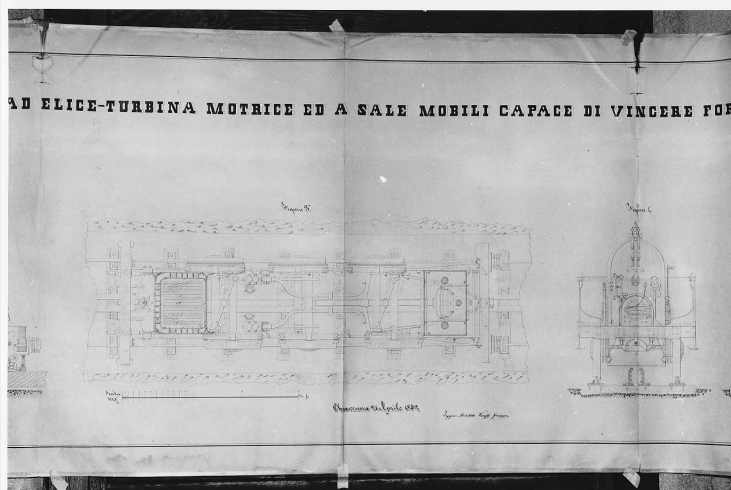 AD ELICE-TURBINA MOTRICE ED A SALE MOBILI CAPACE DI VINCERE FOR
Figura 3ª
Figura 4ª
Scala
Chiavenna 24 Aprile 1887